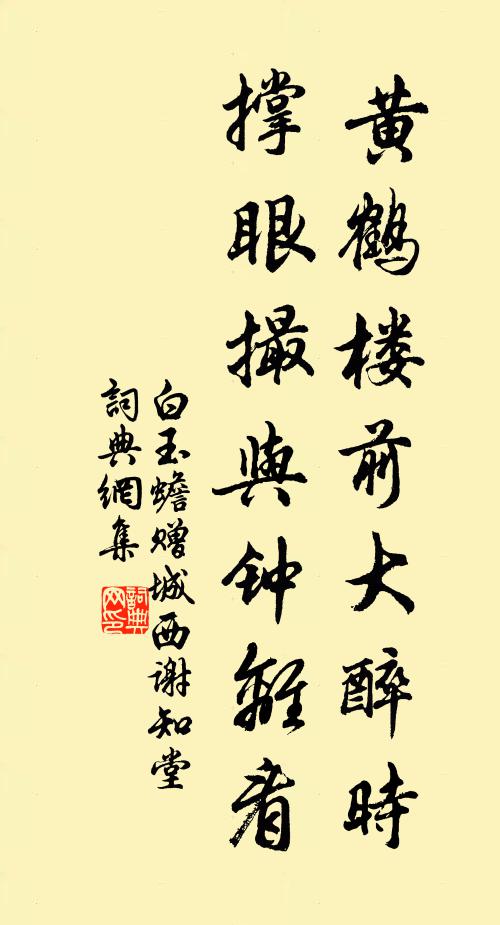 黄鹤楼前大醉時
撑眼撮與钟離看
白玉蟾赠城西谢知堂
詞典網集
詞典网印